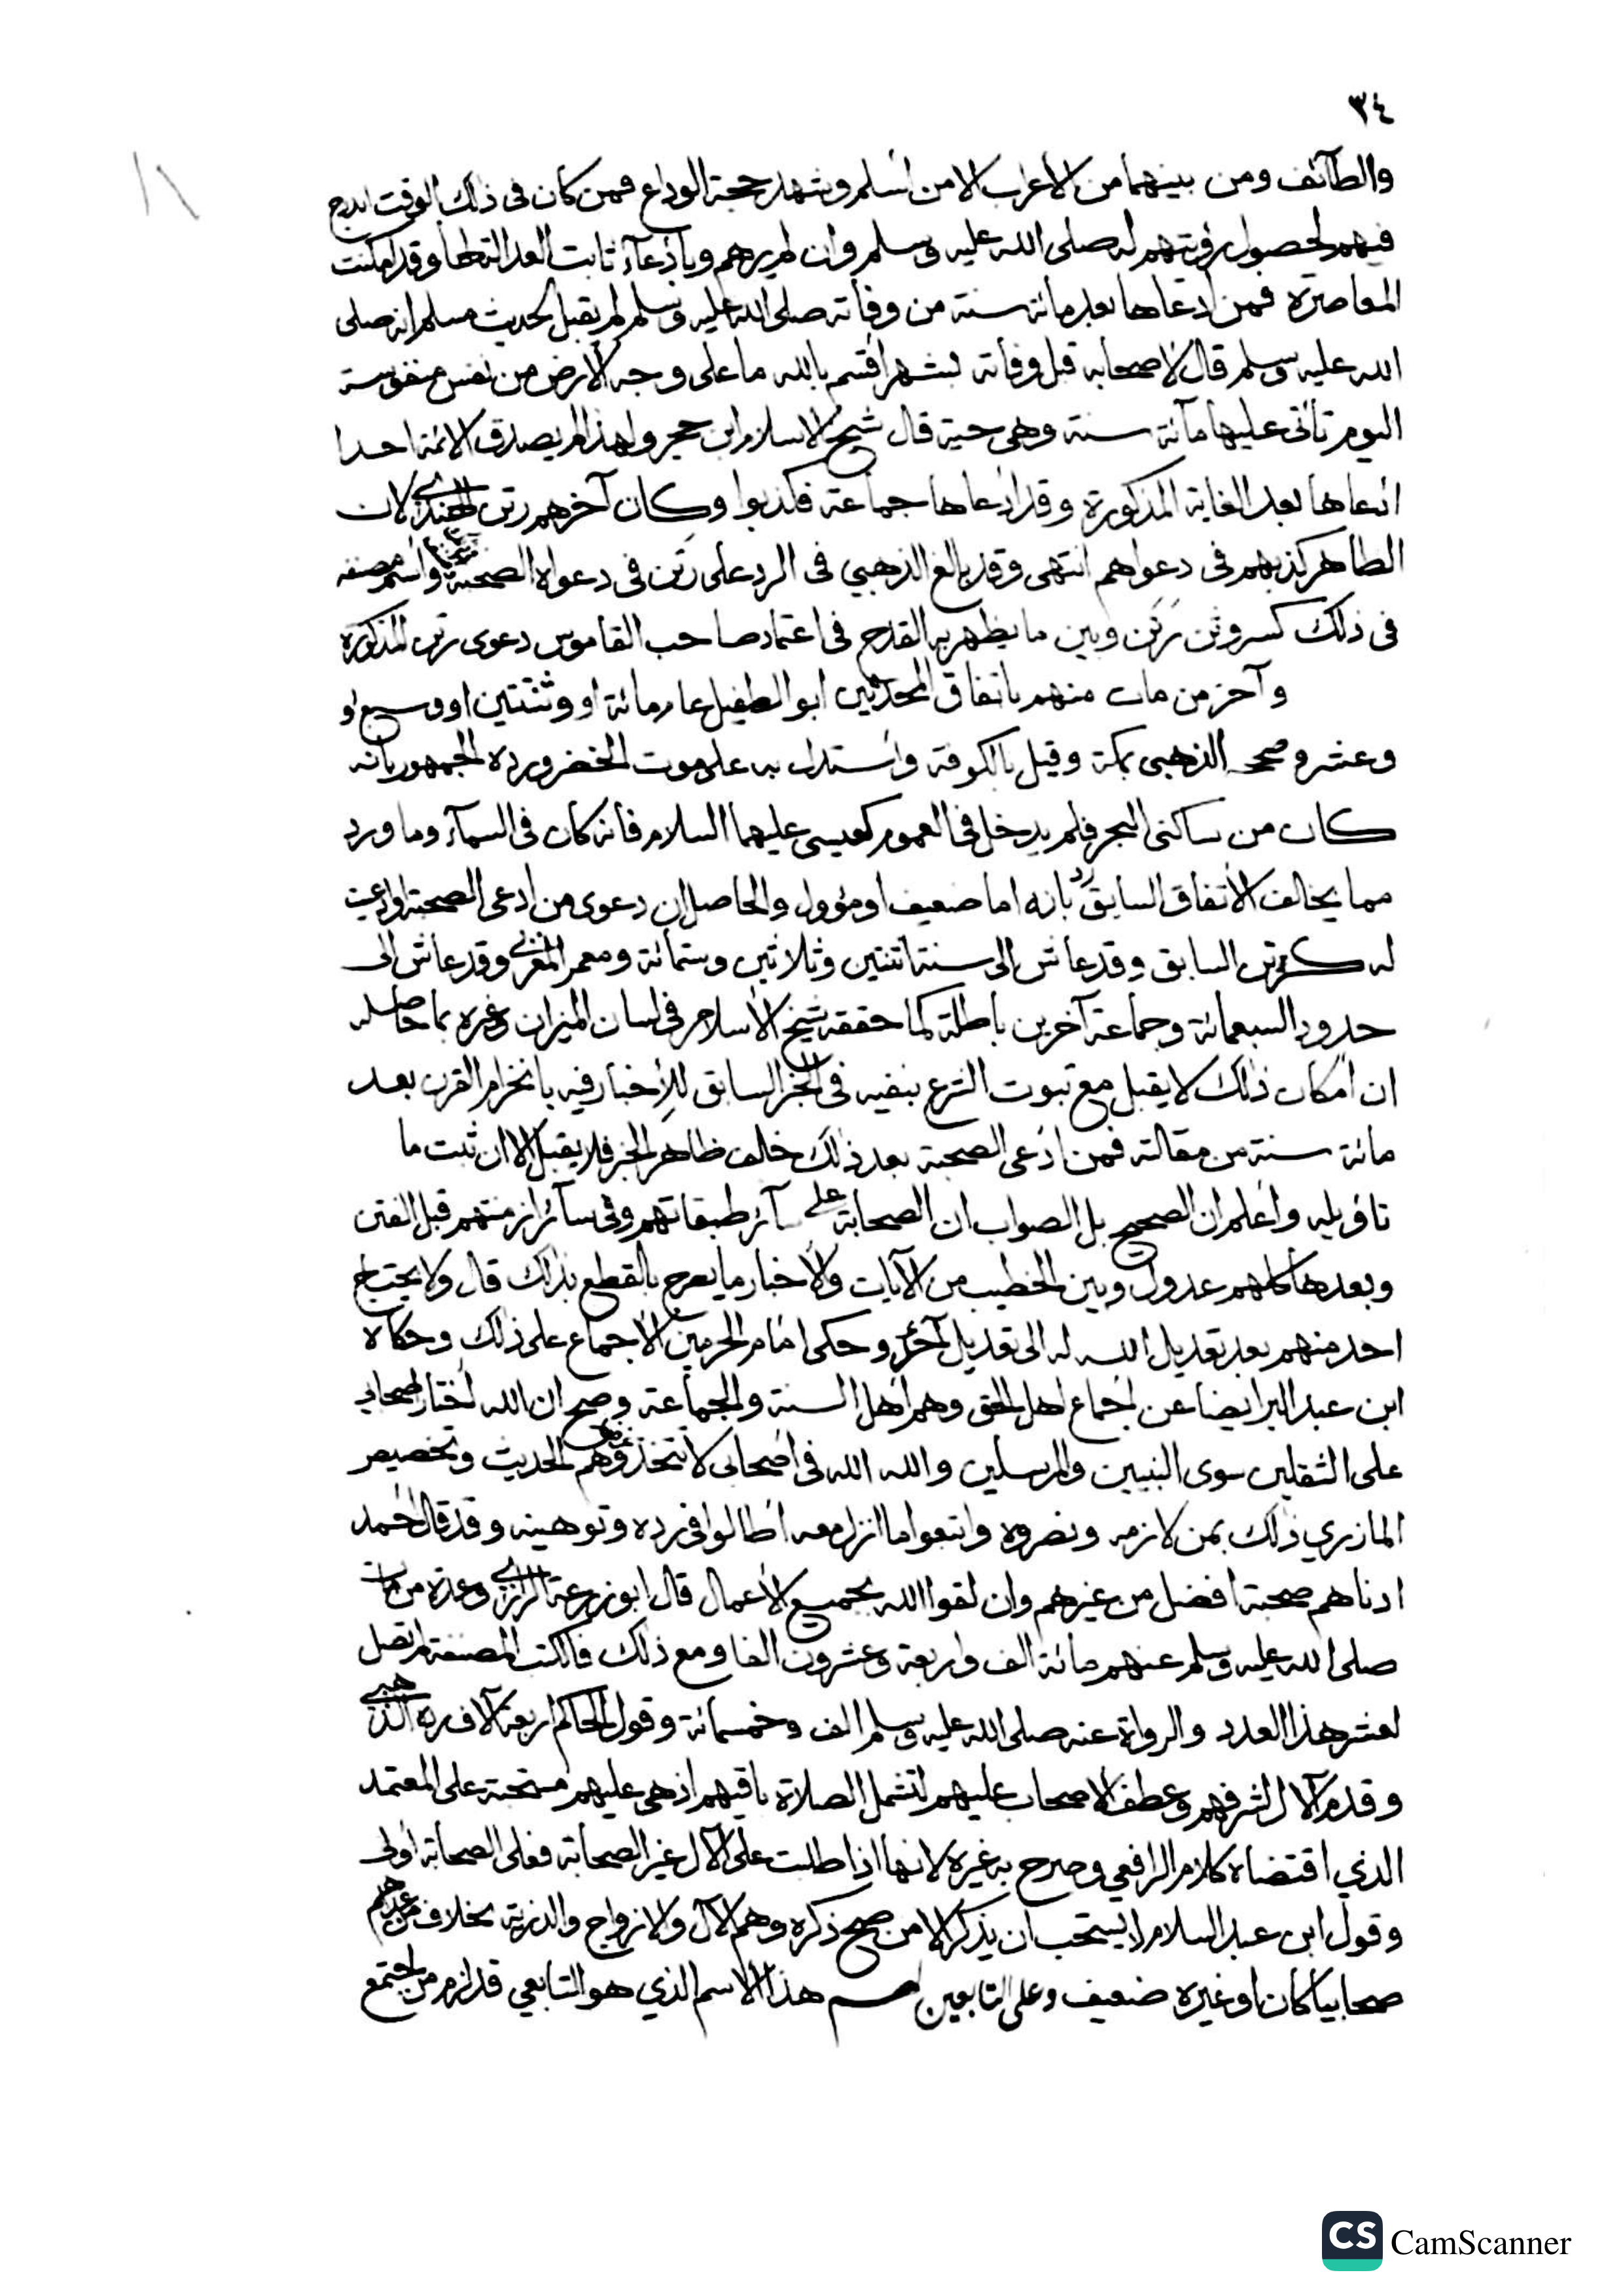 ٣٤
والطآئف ومن بينهما من الاعراب الا من أسلم وشهد حجة الوداع فمن كان فى ذلك الوقت اندرج
فيهم لحصول رؤيتهم له صلى الله عليه وسلم وان لم يرهم وبادعآء ثابت العدالة لها وقد امكنت
المعاصرة فمن ادعاها بعد مائة سنة من وفاته صلى الله عليه وسلم لم يقبل لحديث مسلم انه صلى
الله عليه وسلم قال لاصحابه قبل وفاته بشهر أقسم بالله ما على وجه الأرض من نفس منفوسة
اليوم تأتى عليها مآئة سنة وهى حية قال شيخ الاسلام ابن حجر ولهذا لم يصدق الائمة احدا
ادعاها بعد الغاية المذكورة وقد ادعاها جماعة فكذبوا وكان آخرهم رتن الهندى لان
الظاهر كذبهم فى دعواهم انتهى وقد بالغ الذهبي فى الرد على رتن فى دعواه الصحبة واسم مصنفه
فى ذلك كسر وثن رتن وبين ما يظهر به القدح فى اعتماد صاحب القاموس دعوى رتن المذكورة
وآخر من مات منهم باتفاق المحدثين ابو الطفيل عام مائة او وثنتين او وسبع او
وعشر وصححه الذهبى بمكة وقيل بالكوفة واستدل به على موت الخضر ورده الجمهور بانه
كان من ساكنى البحر فلم يدخل فى العموم كعيسى عليهما السلام فانه كان فى السمآء وما ورد
مما يخالف الاتفاق السابق رد بانه اما ضعيف او مؤول والحاصل ان دعوى من ادعى الصحبة او ادعيت
له كرتن السابق وقد عاش الى سنة اثنتين وثلاثين وستمائة ومعمر المغربى وقد عاش الى
حدود السبعمائة وجماعة آخرين باطلة كما حققه شيخ الأسلام فى لسان الميزان وغيره بما حاصله
ان امكان ذلك لا يقبل مع ثبوت الشرع بنفيه فى الخبر السابق للأخبار فيه بانخرام القرن بعد
مائة سنة من مقالته فمن ادعى الصحبة بعد ذلك خالف ظاهر الخبر فلا يقبل الا ان ثبت ما
تاؤيله واعلم ان الصحيح بل الصواب ان الصحابة على سآئر طبقاتهم وفى سآئر ازمنتهم قبل الفتن
وبعدها كلهم عدول وبين الخطيب من الآيات والأخبار ما يصرح بالقطع بذلك قال ولا يحتاج
احد منهم بعد تعديل الله له الى تعديل آخر وحكى امام الحرمين الأجماع على ذلك وحكاه
ابن عبد البر ايضا عن اجماع اهل الحق وهم اهل السنة والجماعة وصح ان الله اختار اصحابى
على الثقلين سوى النبيين والمرسلين والله الله فى أصحابى لا تتخذوهم الحديث وتخصيص
المازري ذلك بمن لازمه ونصروه واتبعوا ما انزل معه اطالوا فى رده وتوهينه وقد قال احمد
ادناهم صحبة افضل من غيرهم وان لقوا الله بجميع الأعمال قال ابو زرعة الرازى وعدة من مات
صلى الله عليه وسلم عنهم مائة الف واربعة وعشرون الفا ومع ذلك فالكتب المصنفة لم تصل
لعشر هذا العدد والرواة عنه صلى الله عليه وسلم الف وخمسمائة وقول الحاكم اربعة آلاف رده الذهبى
وقدم الآل لشرفهم وعطف الاصحاب عليهم لتشمل الصلاة باقيهم اذ هى عليهم مستحبة على المعتمد
الذي اقتضاه كلام الرافعي وصرح به غيره لانها اذا طلبت على الآل غير الصحابة فعلى الصحابة أولى
وقول ابن عبد السلام لا يستحب ان يذكر الا من صح ذكره وهم الآل والازواج والذرية بخلاف من عداهم
صحابيا كان او غيره ضعيف وعلى التابعين لهم هذا الاسم الذي هو التابعي قد لزم من اجتمع
CS CamScanner